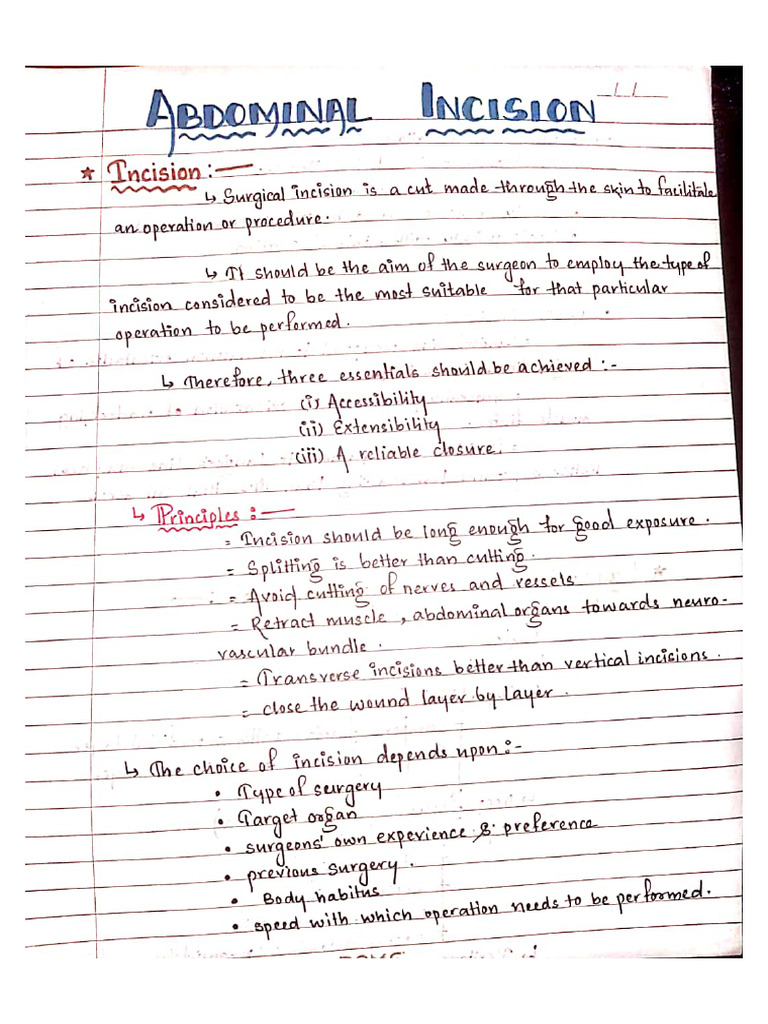 ABDOMINAL INCISION
* Incision :—
↳ Surgical incision is a cut made through the skin to facilitate
an operation or procedure.
↳ It should be the aim of the surgeon to employ the type of
incision considered to be the most suitable for that particular
operation to be performed.
↳ Therefore, three essentials should be achieved :-
(i) Accessibility
(ii) Extensibility
(iii) A reliable closure.
↳ Principles :—
= Incision should be long enough for good exposure.
= Splitting is better than cutting.
= Avoid cutting of nerves and vessels
= Retract muscle, abdominal organs towards neuro-
vascular bundle.
= Transverse incisions better than vertical incisions.
= close the wound layer by layer.
↳ The choice of incision depends upon :-
• Type of surgery
• Target organ
• surgeons' own experience & preference
• previous surgery.
• Body habitus
• speed with which operation needs to be performed.